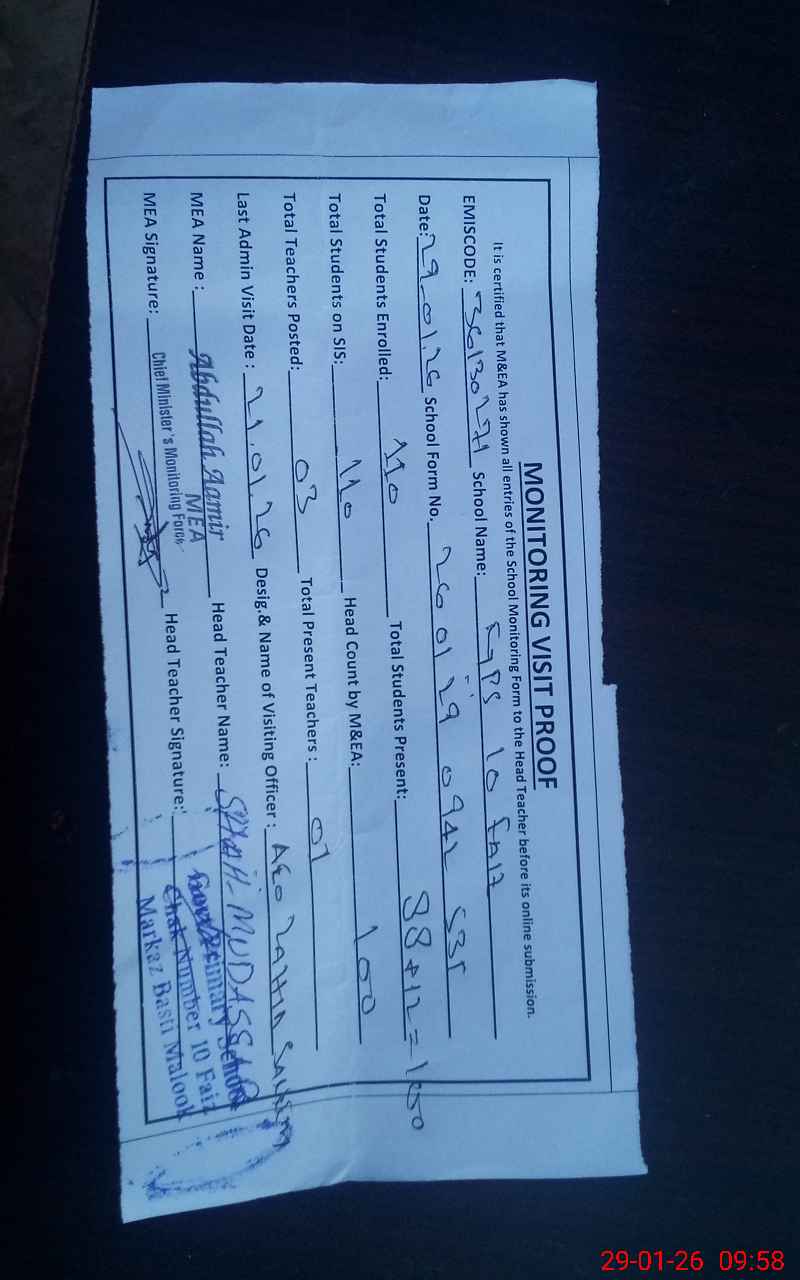 MONITORING VISIT PROOF
It is certified that M&EA has shown all entries of the School Monitoring Form to the Head Teacher before its online submission.
EMISCODE: 36130271 School Name: GPS 10 Faiz
Date: 29.01.26 School Form No. 26 01 29 0942 535
Total Students Enrolled: 110 Total Students Present: 88+12=100
Total Students on SIS: 110 Head Count by M&EA: 100
Total Teachers Posted: 03 Total Present Teachers : 01
Last Admin Visit Date : 21.01.26 Desig.& Name of Visiting Officer : AEO
MEA Name : Abdullah Aamir Head Teacher Name: MUDASSAR
MEA
MEA Signature: Chief Minister's Monitoring Force Head Teacher Signature:
Primary School
Chak Number 10 Faiz
Markaz Basti Malook
29-01-26 09:58